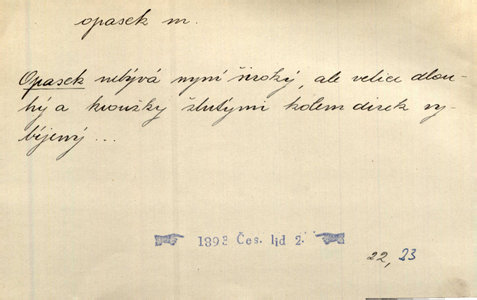 opasek m.
Opasek nebývá nyní široký, ale velice dlou-
hý a kroužky žlutými kolem dírek vy-
bíjený ...
1893 Čes. lid 2.
22, 23